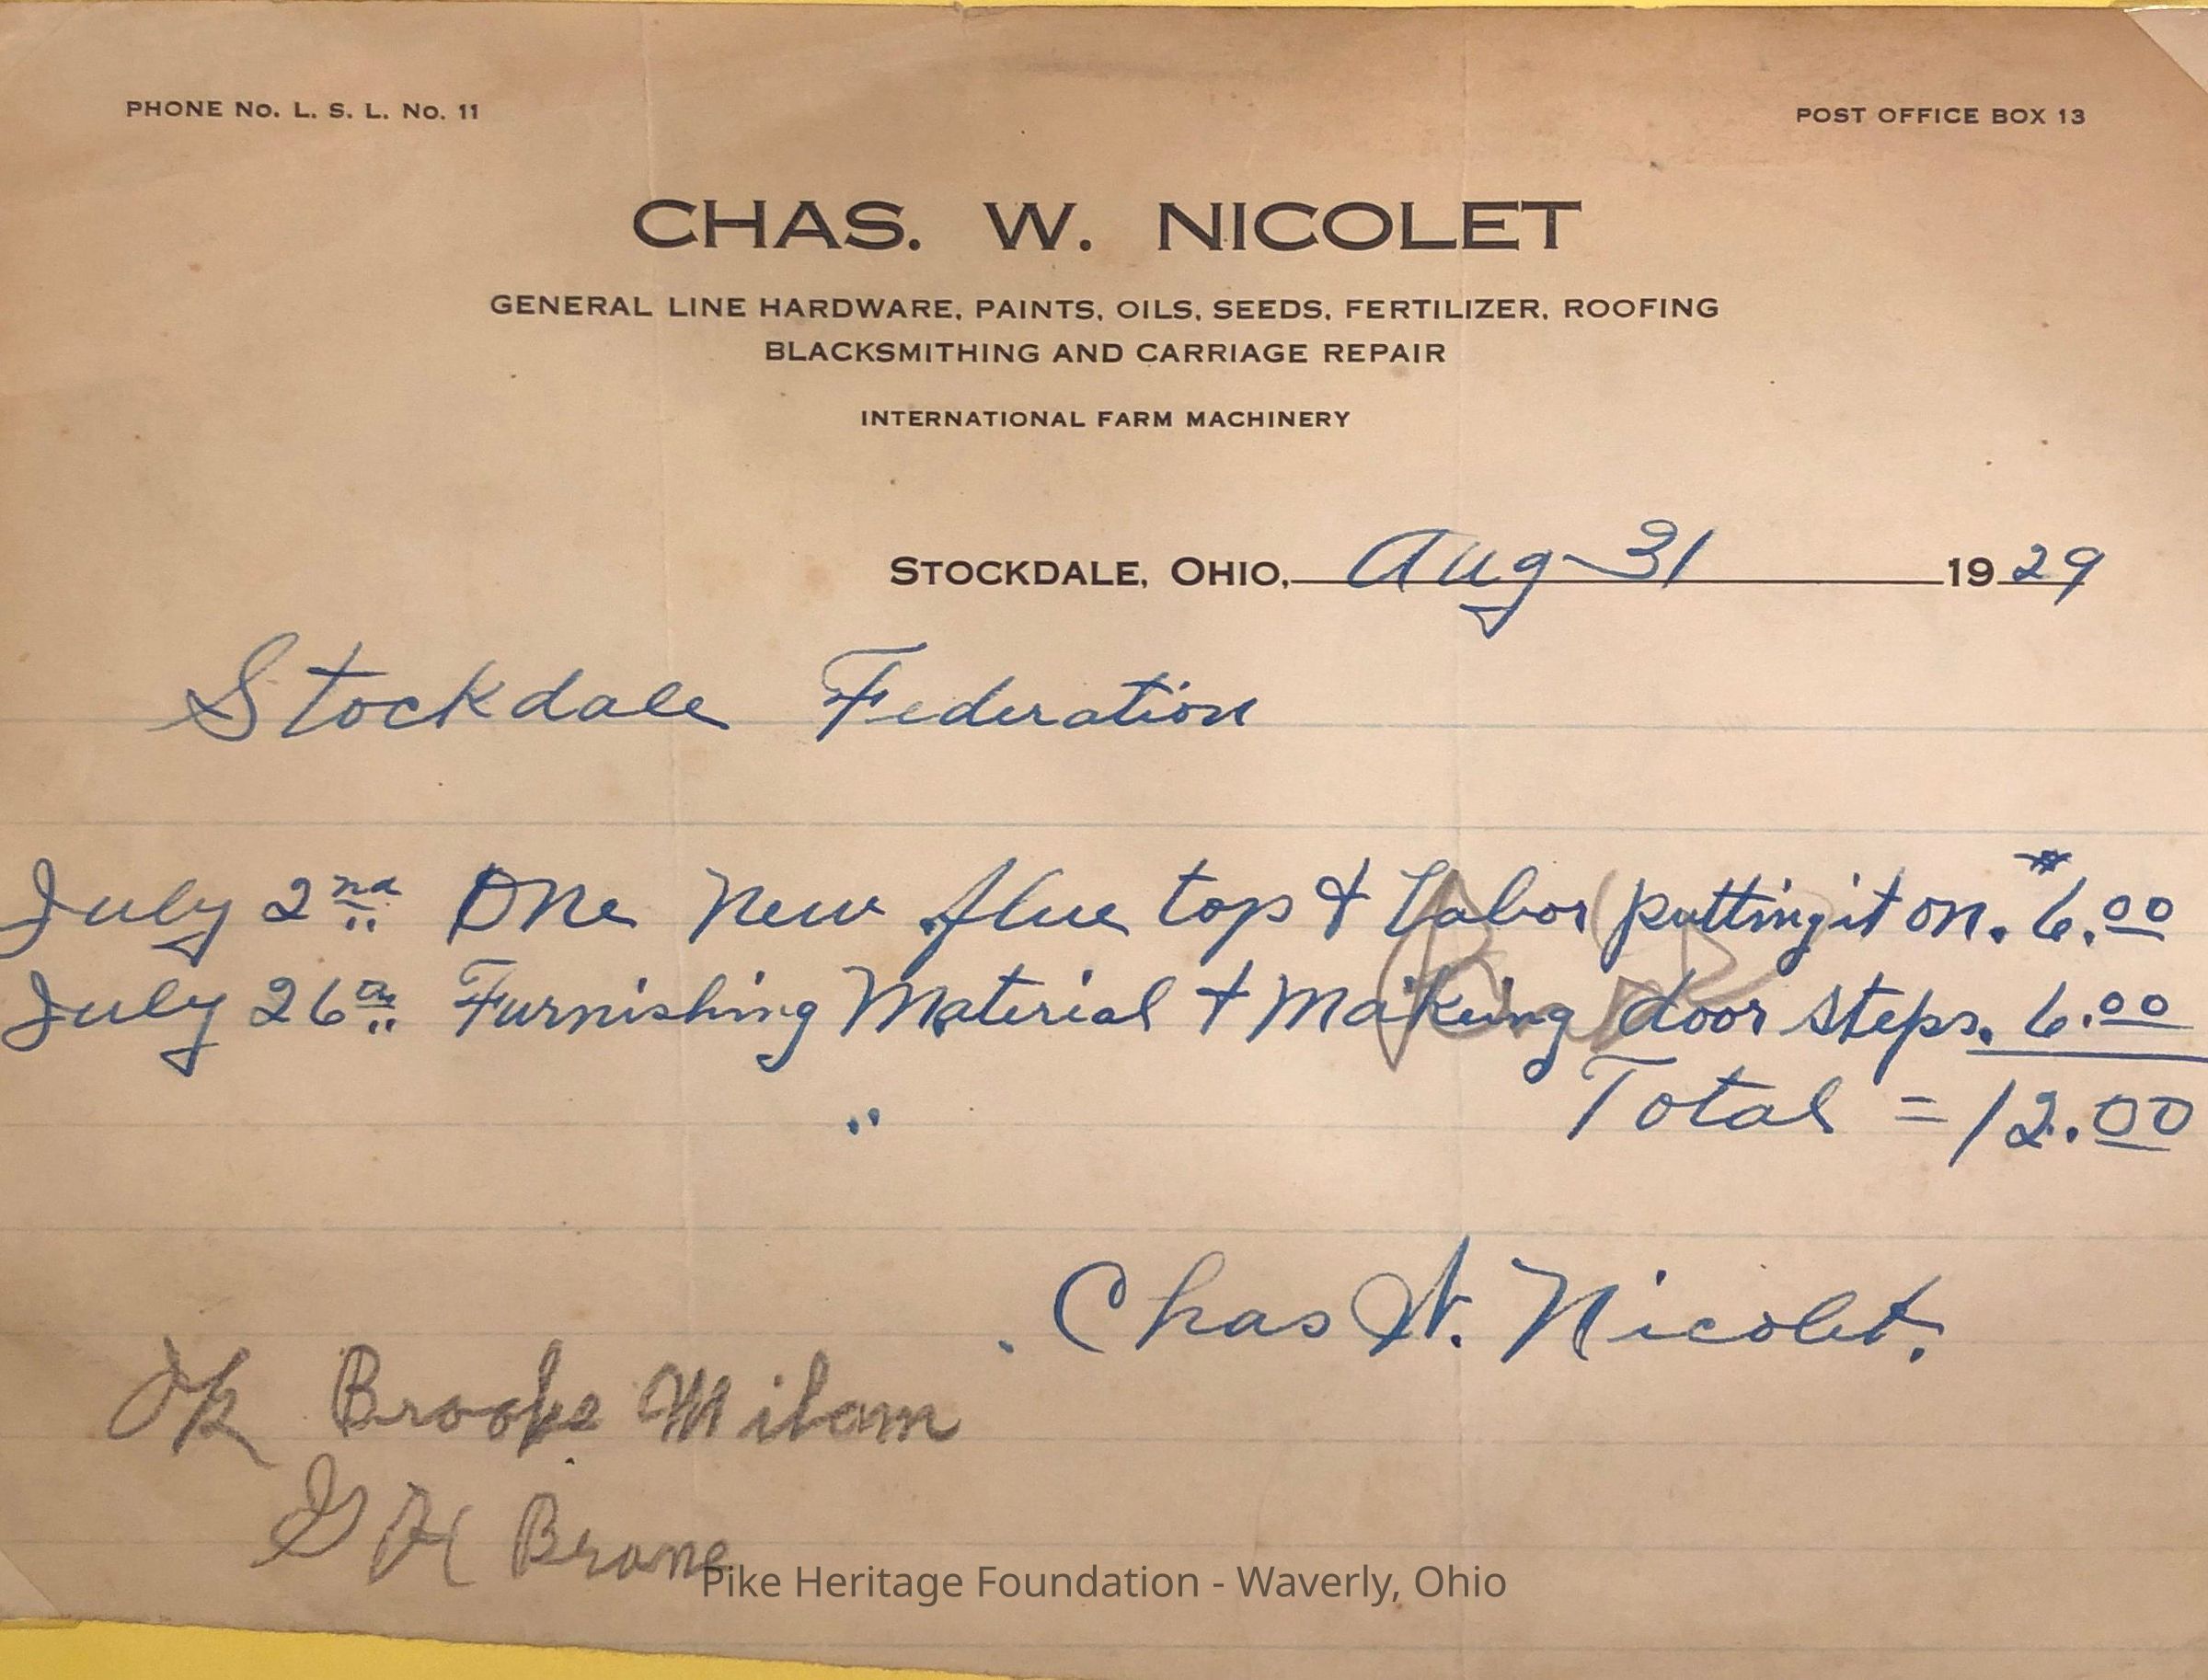 PHONE No. L. S. L. No. 11
POST OFFICE BOX 13
CHAS. W. NICOLET
GENERAL LINE HARDWARE, PAINTS, OILS, SEEDS, FERTILIZER, ROOFING
BLACKSMITHING AND CARRIAGE REPAIR
INTERNATIONAL FARM MACHINERY
STOCKDALE, OHIO, Aug 31 1929
Stockdale Federation
July 2nd One New flue top & Labor putting it on. 6.00
July 26 Furnishing Material & Making door steps. 6.00
Total = 12.00
Chas W. Nicolet.
Ok Brooks Milam
G H Brane
Pike Heritage Foundation - Waverly, Ohio